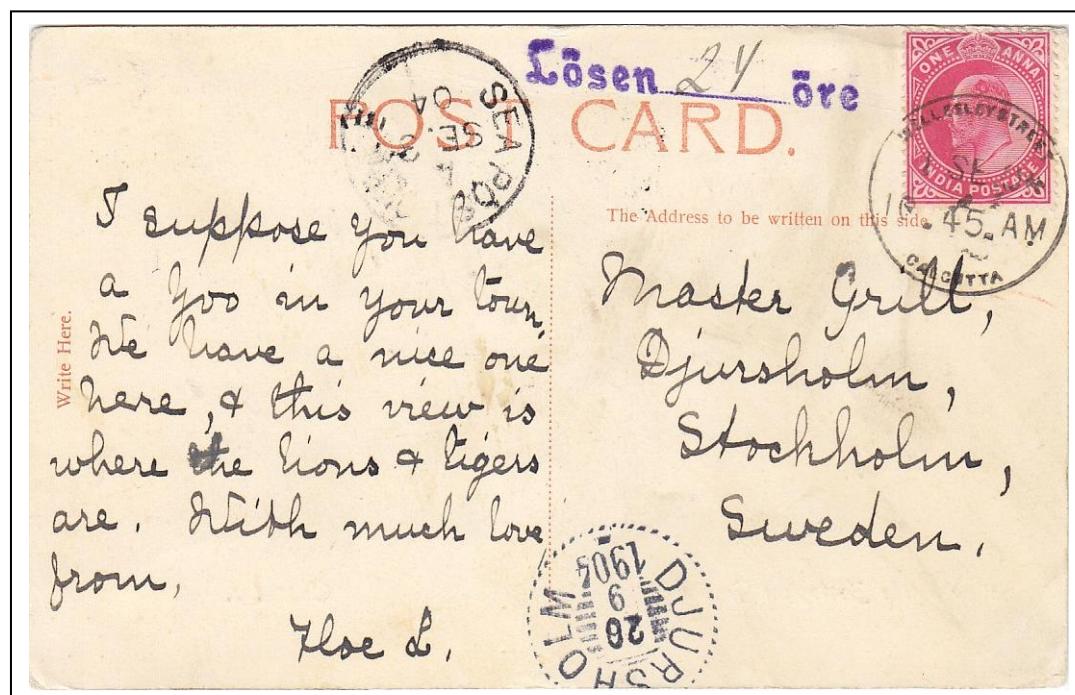 Lösen 24 öre
POST CARD.
ONE ANNA
INDIA POSTAGE
SEA POS
SE
04
WELLESLEY STREET
SE
10 . 45 . AM
CALCUTTA
The Address to be written on this side.
Write Here.
I suppose you have
a Zoo in your town.
We have a nice one
here, & this view is
where the lions & tigers
are. With much love
from,
L.
Master Grill,
Djursholm,
Stockholm,
Sweden.
DJURSHOLM
26
9
1904